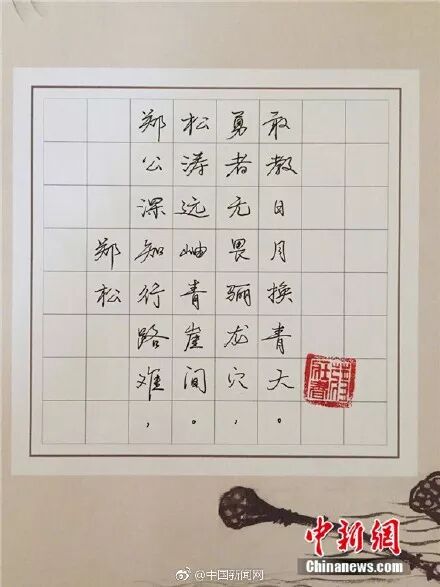 郑松
郑公深知行路难，
松涛远岫青崖间。
勇者无畏骊龙穴，
敢教日月换青天。
中新网
www.chinanews.com
@中国新闻网